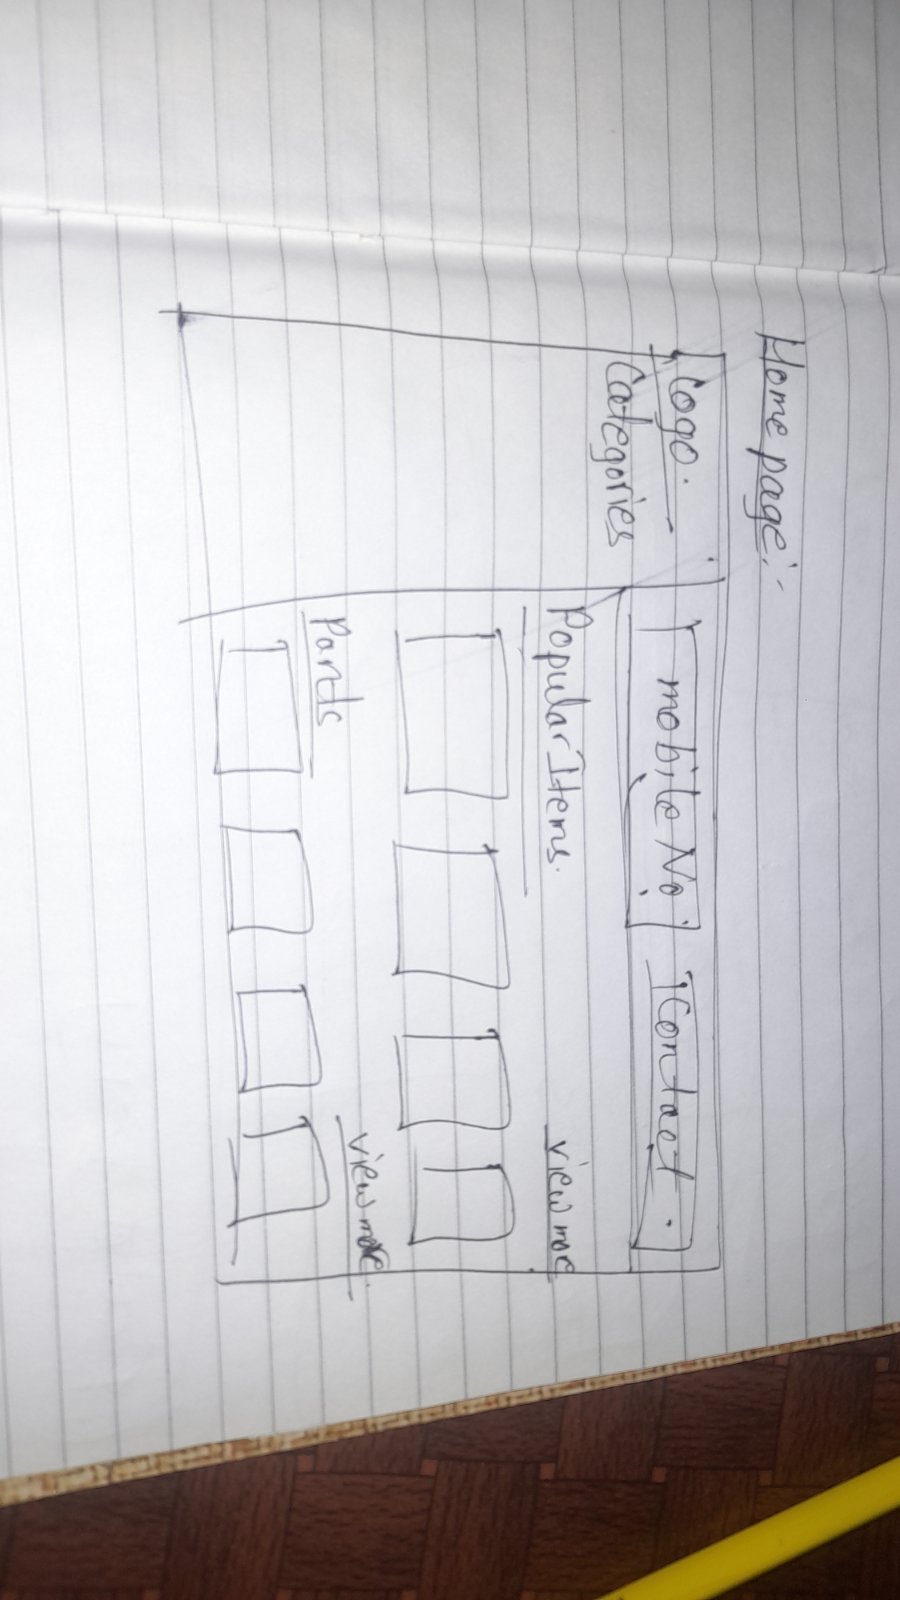 Home page:-
Logo.
Categories
mobile No.
Contact.
Popular Items.
view more
Pants
view more.